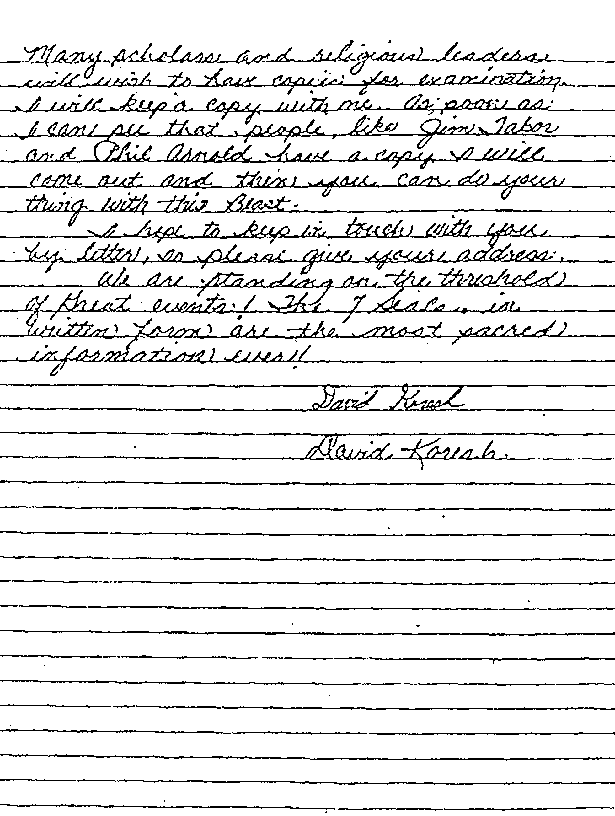 Many scholars and religious leaders
will wish to have copies for examination.
I will keep a copy with me. As soon as
I can see that people, like Jim Tabor
and Phil Arnold have a copy I will
come out and then you can do your
thing with this Beast.
I hope to keep in touch with you
by letter, so please give your address.
We are standing on the threshold
of Great events! The 7 Seals, in
written form are the most sacred
information ever!!
David Koresh
David Koresh.